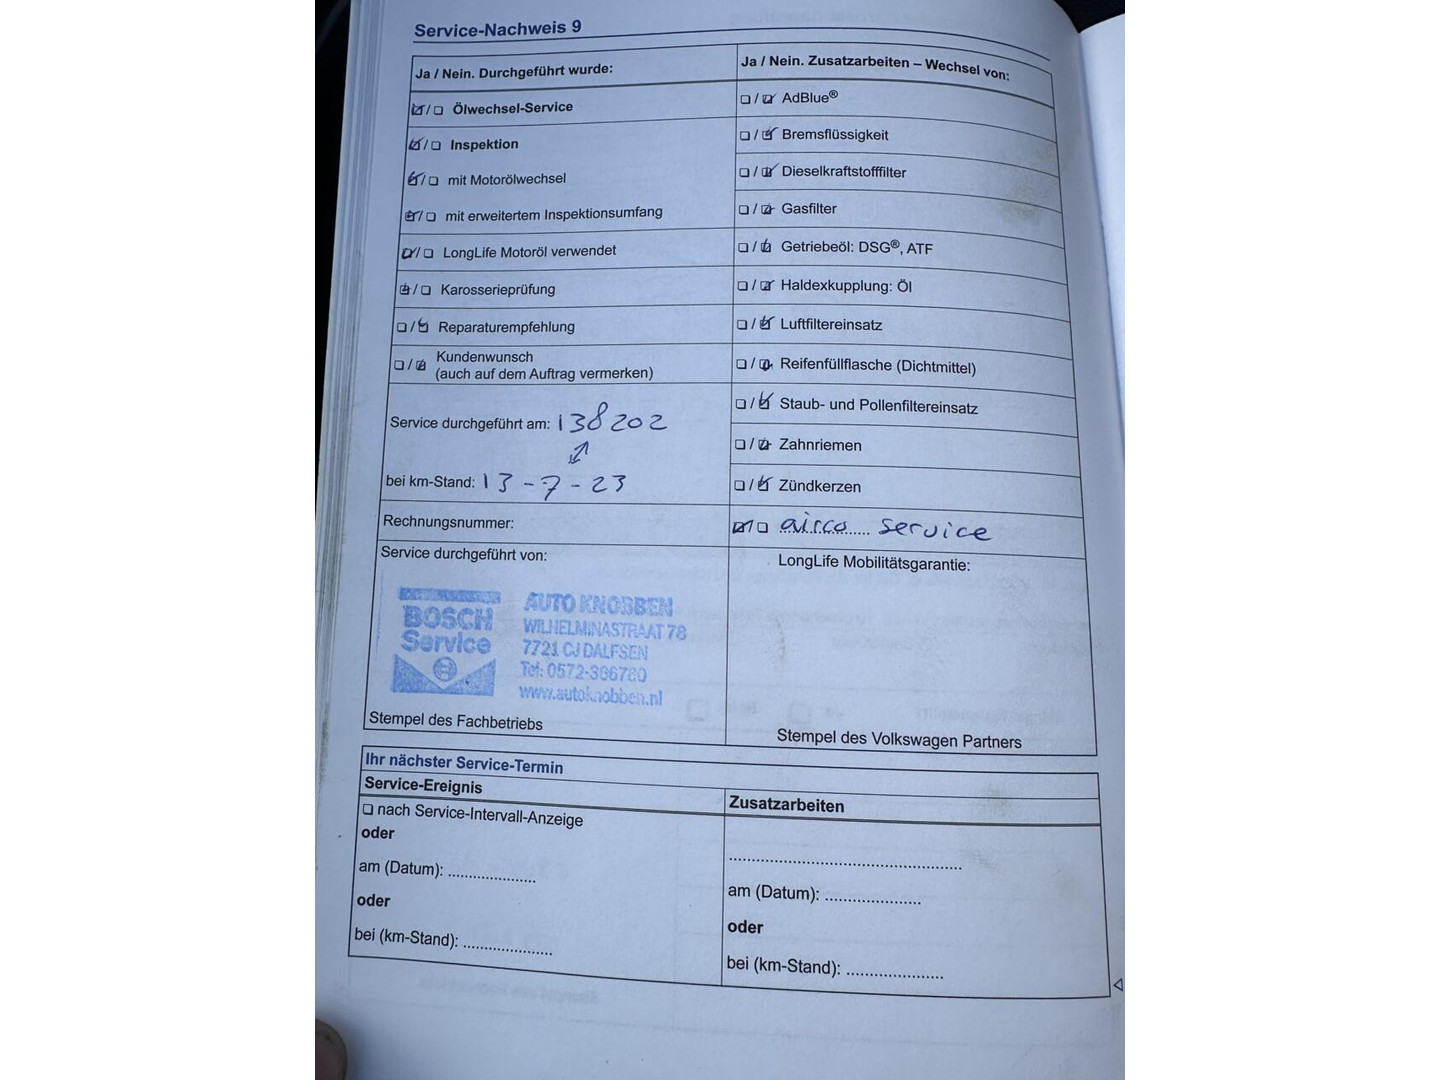 Service-Nachweis 9
Ja / Nein. Durchgeführt wurde:
/ Ölwechsel-Service
/ Inspektion
/ mit Motorölwechsel
/ mit erweitertem Inspektionsumfang
/ LongLife Motoröl verwendet
/ Karosserieprüfung
/ Reparaturempfehlung
/ Kundenwunsch
(auch auf dem Auftrag vermerken)
Service durchgeführt am: 138202
bei km-Stand: 13-7-23
Rechnungsnummer:
Service durchgeführt von:
BOSCH
Service
AUTO KNOBBEN
WILHELMINASTRAAT 78
7721 CJ DALFSEN
Tel: 0572-366780
www.autoknobben.nl
Stempel des Fachbetriebs
Ja / Nein. Zusatzarbeiten – Wechsel von:
/ AdBlue®
/ Bremsflüssigkeit
/ Dieselkraftstofffilter
/ Gasfilter
/ Getriebeöl: DSG®, ATF
/ Haldexkupplung: Öl
/ Luftfiltereinsatz
/ Reifenfüllflasche (Dichtmittel)
/ Staub- und Pollenfiltereinsatz
/ Zahnriemen
/ Zündkerzen
/ airco service
LongLife Mobilitätsgarantie:
Stempel des Volkswagen Partners
Ihr nächster Service-Termin
Service-Ereignis
nach Service-Intervall-Anzeige
oder
am (Datum): ....................
oder
bei (km-Stand): ....................
Zusatzarbeiten
..................................................
am (Datum): ......................
oder
bei (km-Stand): ......................